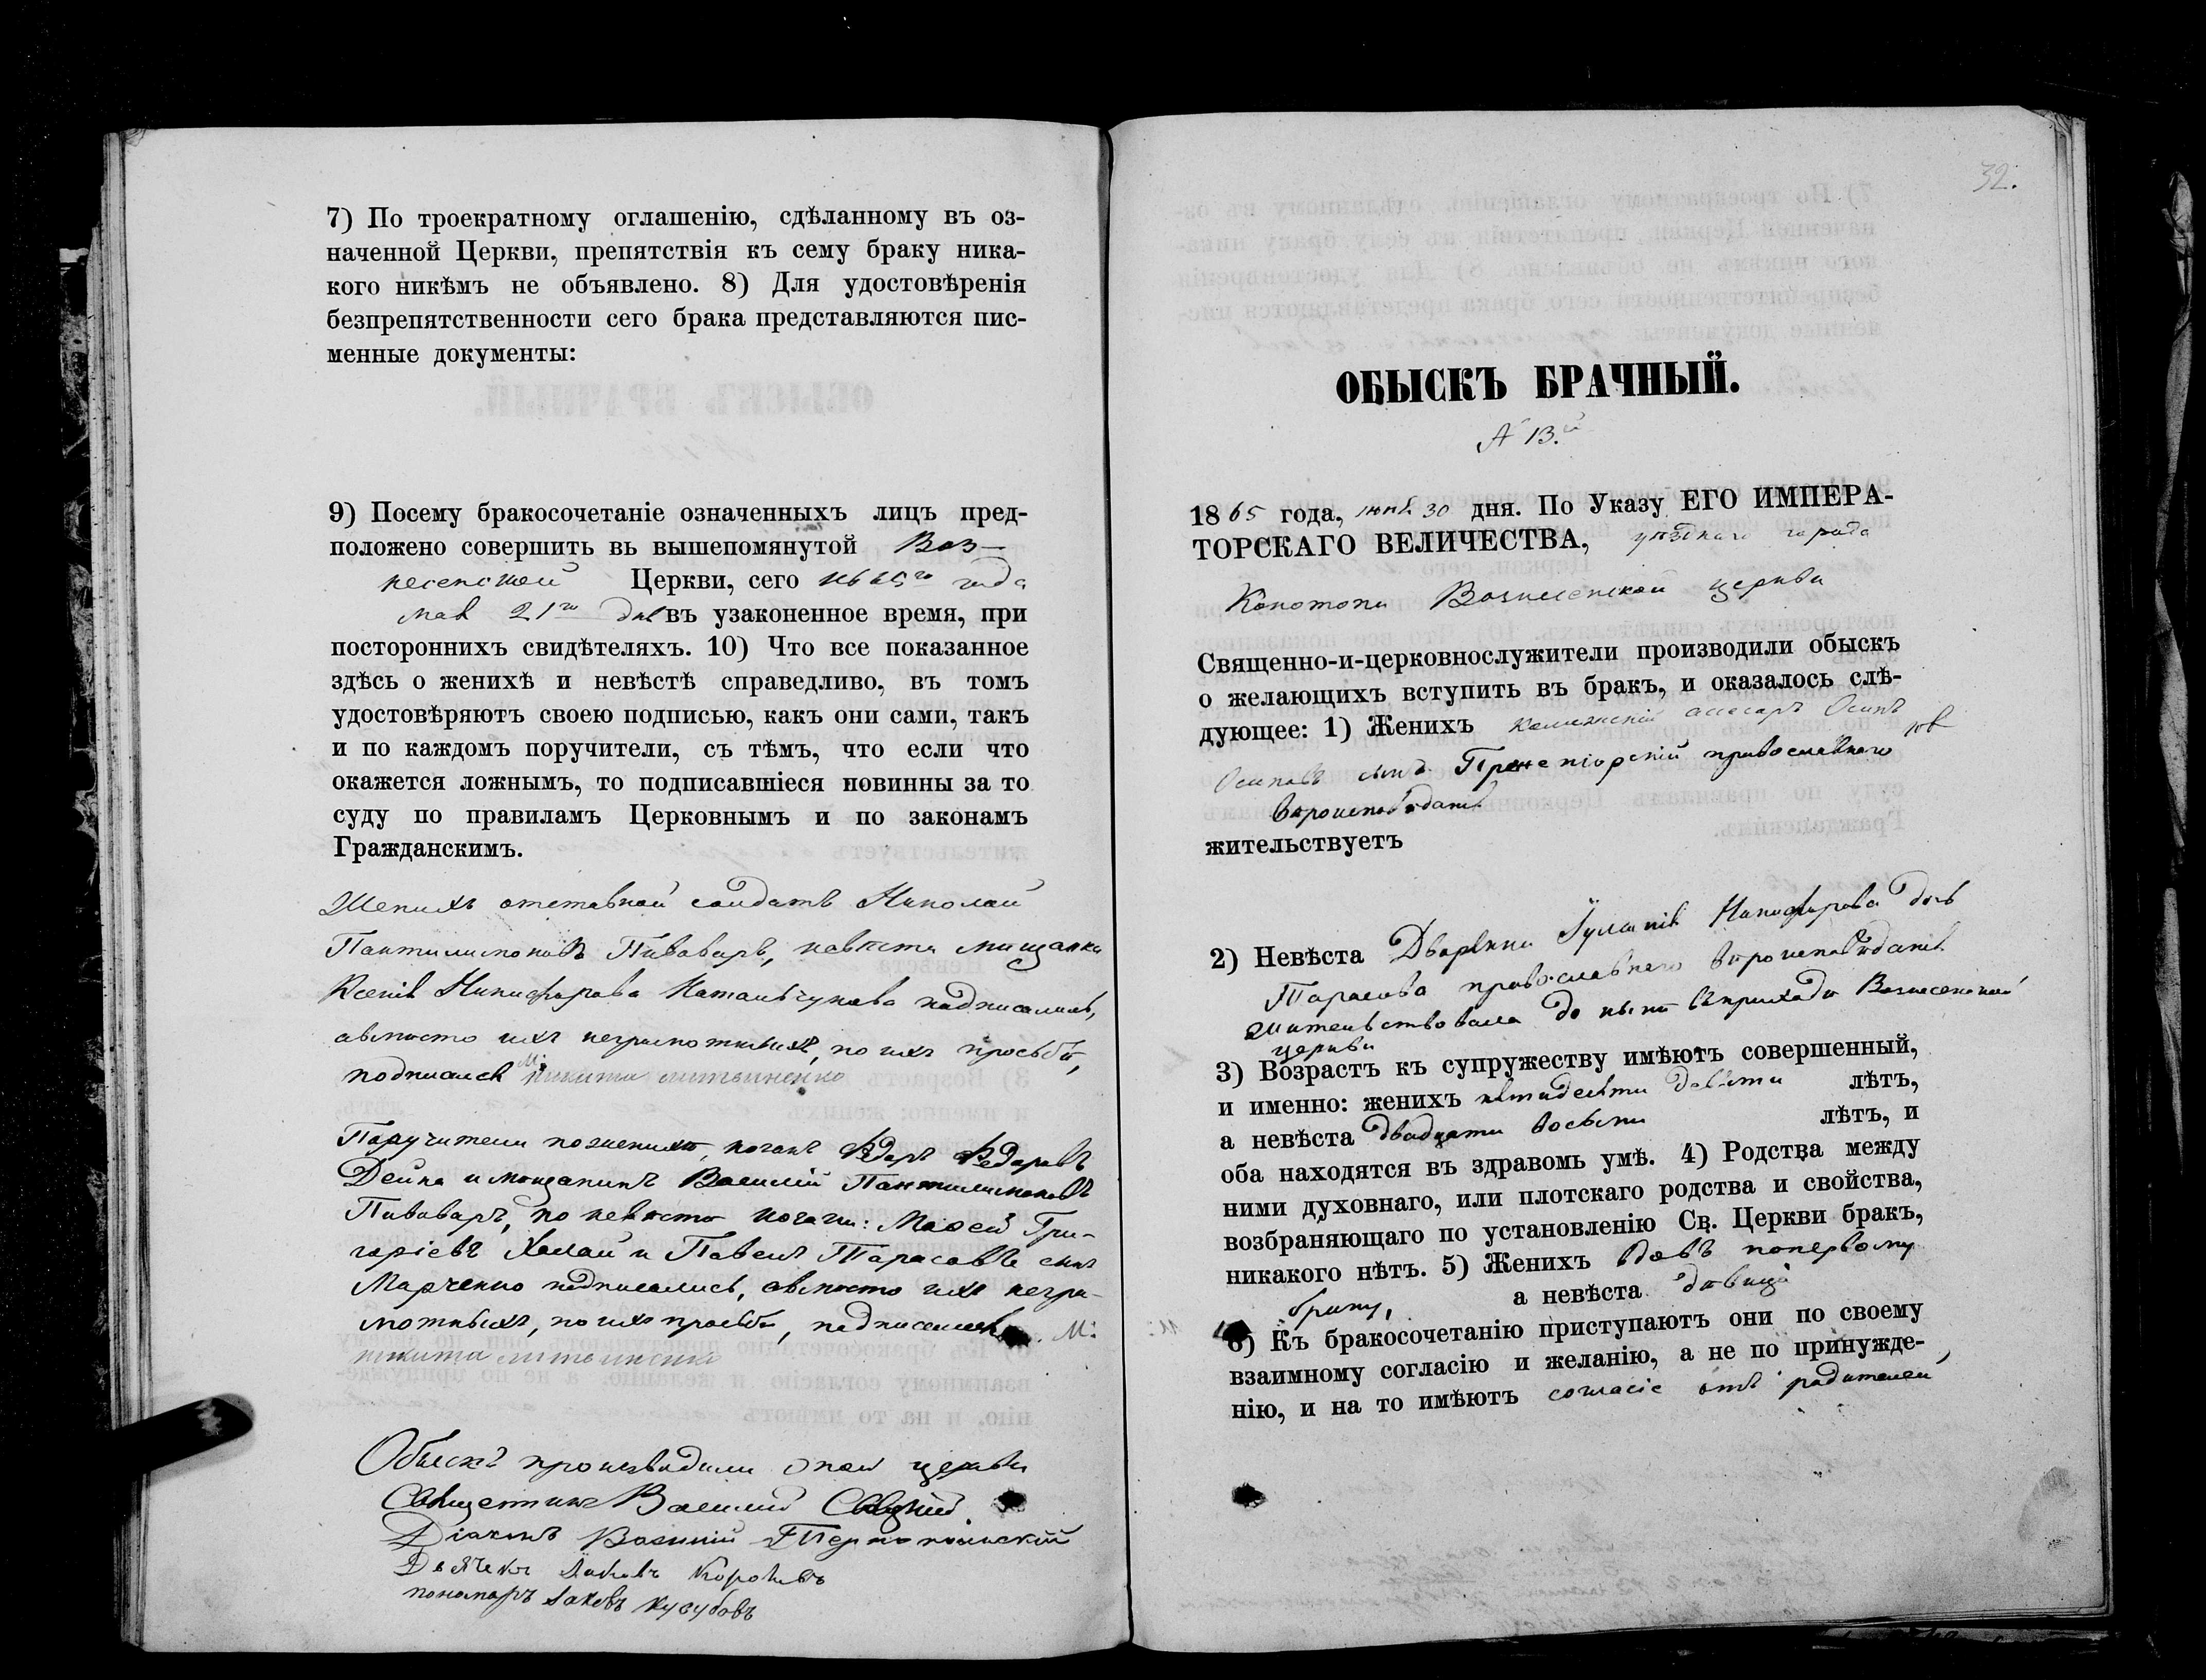 7) По троекратному оглашенію, сдѣланному въ оз-
наченной Церкви, препятствія къ сему браку ника-
кого никѣмъ не объявлено. 8) Для удостовѣренія
безпрепятственности сего брака представляются пис-
менные документы:
9) Посему бракосочетаніе означенныхъ лицъ пред-
положено совершить вь вышепомянутой Воз-
несенской Церкви, сего 1865го года
мая 21го дня въ узаконенное время, при
постороннихъ свидѣтеляхъ. 10) Что все показанное
здѣсь о женихѣ и невѣстѣ справедливо, въ томъ
удостовѣряютъ своею подписью, какъ они сами, такъ
и по каждомъ поручители, съ тѣмъ, что если что
окажется ложнымъ, то подписавшіеся повинны за то
суду по правиламъ Церковнымъ и по законамъ
Гражданскимъ.
Женихъ отставной солдатъ Николай
Пантилимоновъ Пивоваръ, невѣста мищанка
Ксенія Никифорова подписались,
авмѣсто ихъ неграмотныхъ, по ихъ просьбѣ,
подписался М: Никита Литвиненко
Поручители поженихѣ, козакъ Ѳедоръ Ѳедоровъ
Дейка и мѣщанинъ Василій Пантилимоновъ
Пивоваръ, по невѣстѣ козаки: Моѳей Гри-
горіевъ Халай и Павелъ Тарасовъ сынъ
Марченко подписались, авмѣсто ихъ негра-
мотныхъ, по ихъ просьбѣ, подписался М:
Никита Литвиненко
Обыскъ производили оной церкви
Священникъ Василий
Діаконъ Василій
Дьячекъ Яковъ
пономарь Яковъ Кусубовъ
32.
ОБЫСКЪ БРАЧНЫЙ.
№ 13.й
1865 года, іюня 30 дня. По Указу ЕГО ИМПЕРА-
ТОРСКАГО ВЕЛИЧЕСТВА, уѣзднаго города
Конотопа Вознесенской церкви
Священно-и-церковнослужители производили обыскъ
о желающихъ вступить въ бракъ, и оказалось слѣ-
дующее: 1) Женихъ колежскій асесоръ Осипъ
Осиповъ сынъ православнаго
вѣроисповѣданія
жительствуетъ
2) Невѣста Дворянка Іуліанія Никифорова дочь
Тарасова православнаго вѣроисповѣданія
жительствовала до нынѣ въ приходѣ Вознесенской
церкви
3) Возрастъ къ супружеству имѣютъ совершенный,
и именно: женихъ пятидесяти девяти лѣтъ,
а невѣста двадцати восьми лѣтъ, и
оба находятся въ здравомь умѣ. 4) Родства между
ними духовнаго, или плотскаго родства и свойства,
возбраняющаго по установленію Св. Церкви бракъ,
никакого нѣтъ. 5) Женихъ вдовъ поперьвому
браку, а невѣста дѣвица
6) Къ бракосочетанію приступаютъ они по своему
взаимному согласію и желанію, а не по принужде-
нію, и на то имѣютъ согласіе отъ родителей,